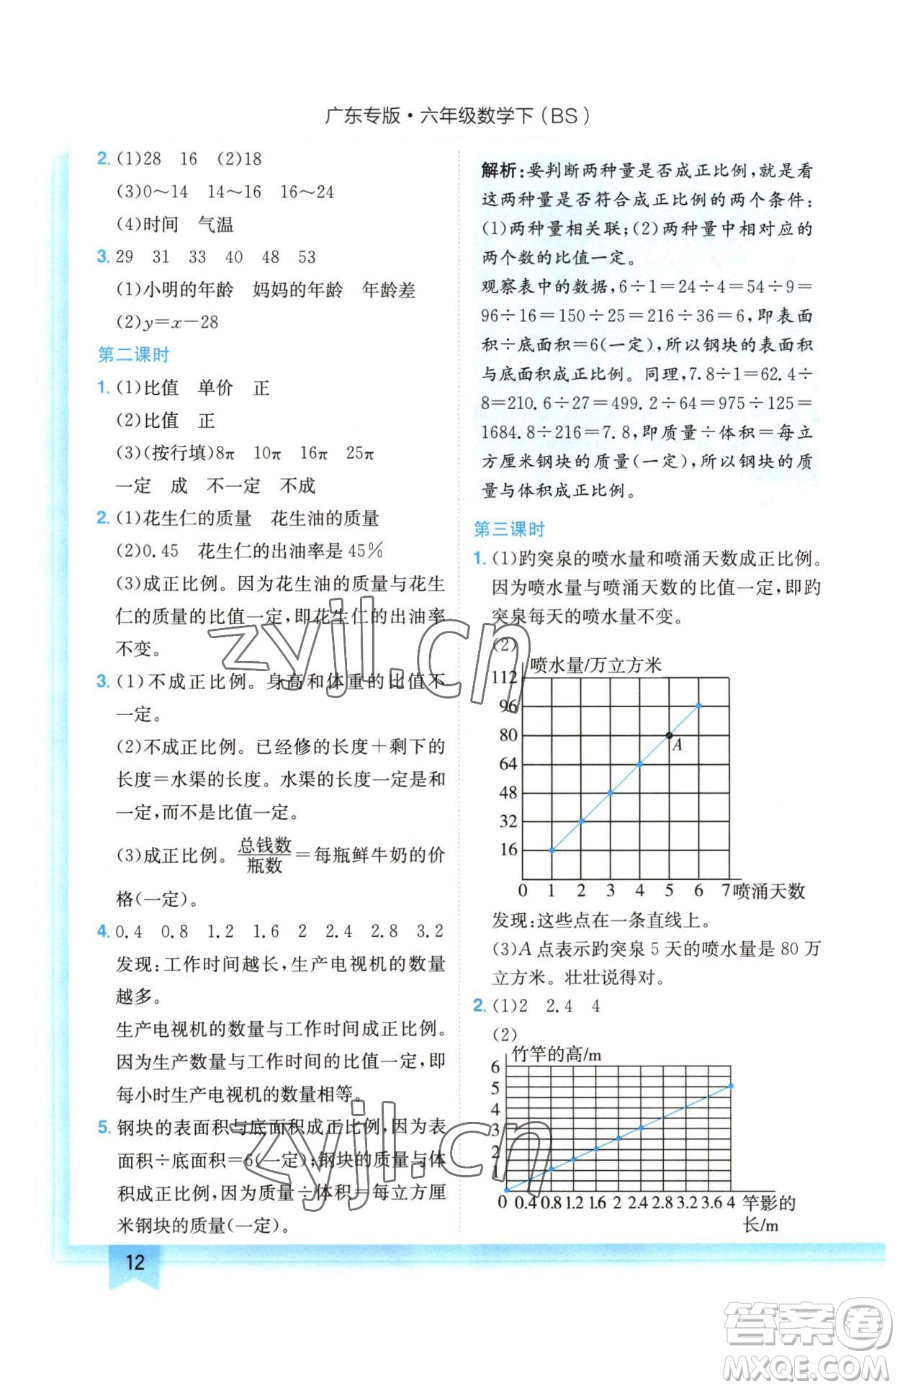 广东专版·六年级数学下(BS)
2. (1)28 16 (2)18
(3)0～14 14～16 16～24
(4)时间 气温
3. 29 31 33 40 48 53
(1)小明的年龄 妈妈的年龄 年龄差
(2)y=x-28
第二课时
1. (1)比值 单价 正
(2)比值 正
(3)(按行填)8π 10π 16π 25π
一定 成 不一定 不成
2. (1)花生仁的质量 花生油的质量
(2)0.45 花生仁的出油率是45%
(3)成正比例。因为花生油的质量与花生
仁的质量的比值一定,即花生仁的出油率
不变。
3. (1)不成正比例。身高和体重的比值不
一定。
(2)不成正比例。已经修的长度+剩下的
长度=水渠的长度。水渠的长度一定是和
一定,而不是比值一定。
(3)成正比例。总钱数/瓶数=每瓶鲜牛奶的价
格(一定)。
4. 0.4 0.8 1.2 1.6 2 2.4 2.8 3.2
发现:工作时间越长,生产电视机的数量
越多。
生产电视机的数量与工作时间成正比例。
因为生产数量与工作时间的比值一定,即
每小时生产电视机的数量相等。
5. 钢块的表面积与底面积成正比例,因为表
面积÷底面积=6(一定);钢块的质量与体
积成正比例,因为质量÷体积=每立方厘
米钢块的质量(一定)。
解析:要判断两种量是否成正比例,就是看
这两种量是否符合成正比例的两个条件:
(1)两种量相关联;(2)两种量中相对应的
两个数的比值一定。
观察表中的数据,6÷1=24÷4=54÷9=
96÷16=150÷25=216÷36=6,即表面
积÷底面积=6(一定),所以钢块的表面积
与底面积成正比例。同理,7.8÷1=62.4÷
8=210.6÷27=499.2÷64=975÷125=
1684.8÷216=7.8,即质量÷体积=每立
方厘米钢块的质量(一定),所以钢块的质
量与体积成正比例。
第三课时
1. (1)趵突泉的喷水量和喷涌天数成正比例。
因为喷水量与喷涌天数的比值一定,即趵
突泉每天的喷水量不变。
(2)
喷水量/万立方米
112
96
80
64
48
32
16
A
0 1 2 3 4 5 6 7 喷涌天数
发现:这些点在一条直线上。
(3)A点表示趵突泉5天的喷水量是80万
立方米。壮壮说得对。
2. (1)2 2.4 4
(2)
竹竿的高/m
6
5
4
3
2
1
0 0.4 0.8 1.2 1.6 2 2.4 2.8 3.2 3.6 4 竿影的
长/m
12
zyjl.cn
zyjl.cn
答案圈
MXQE.COM